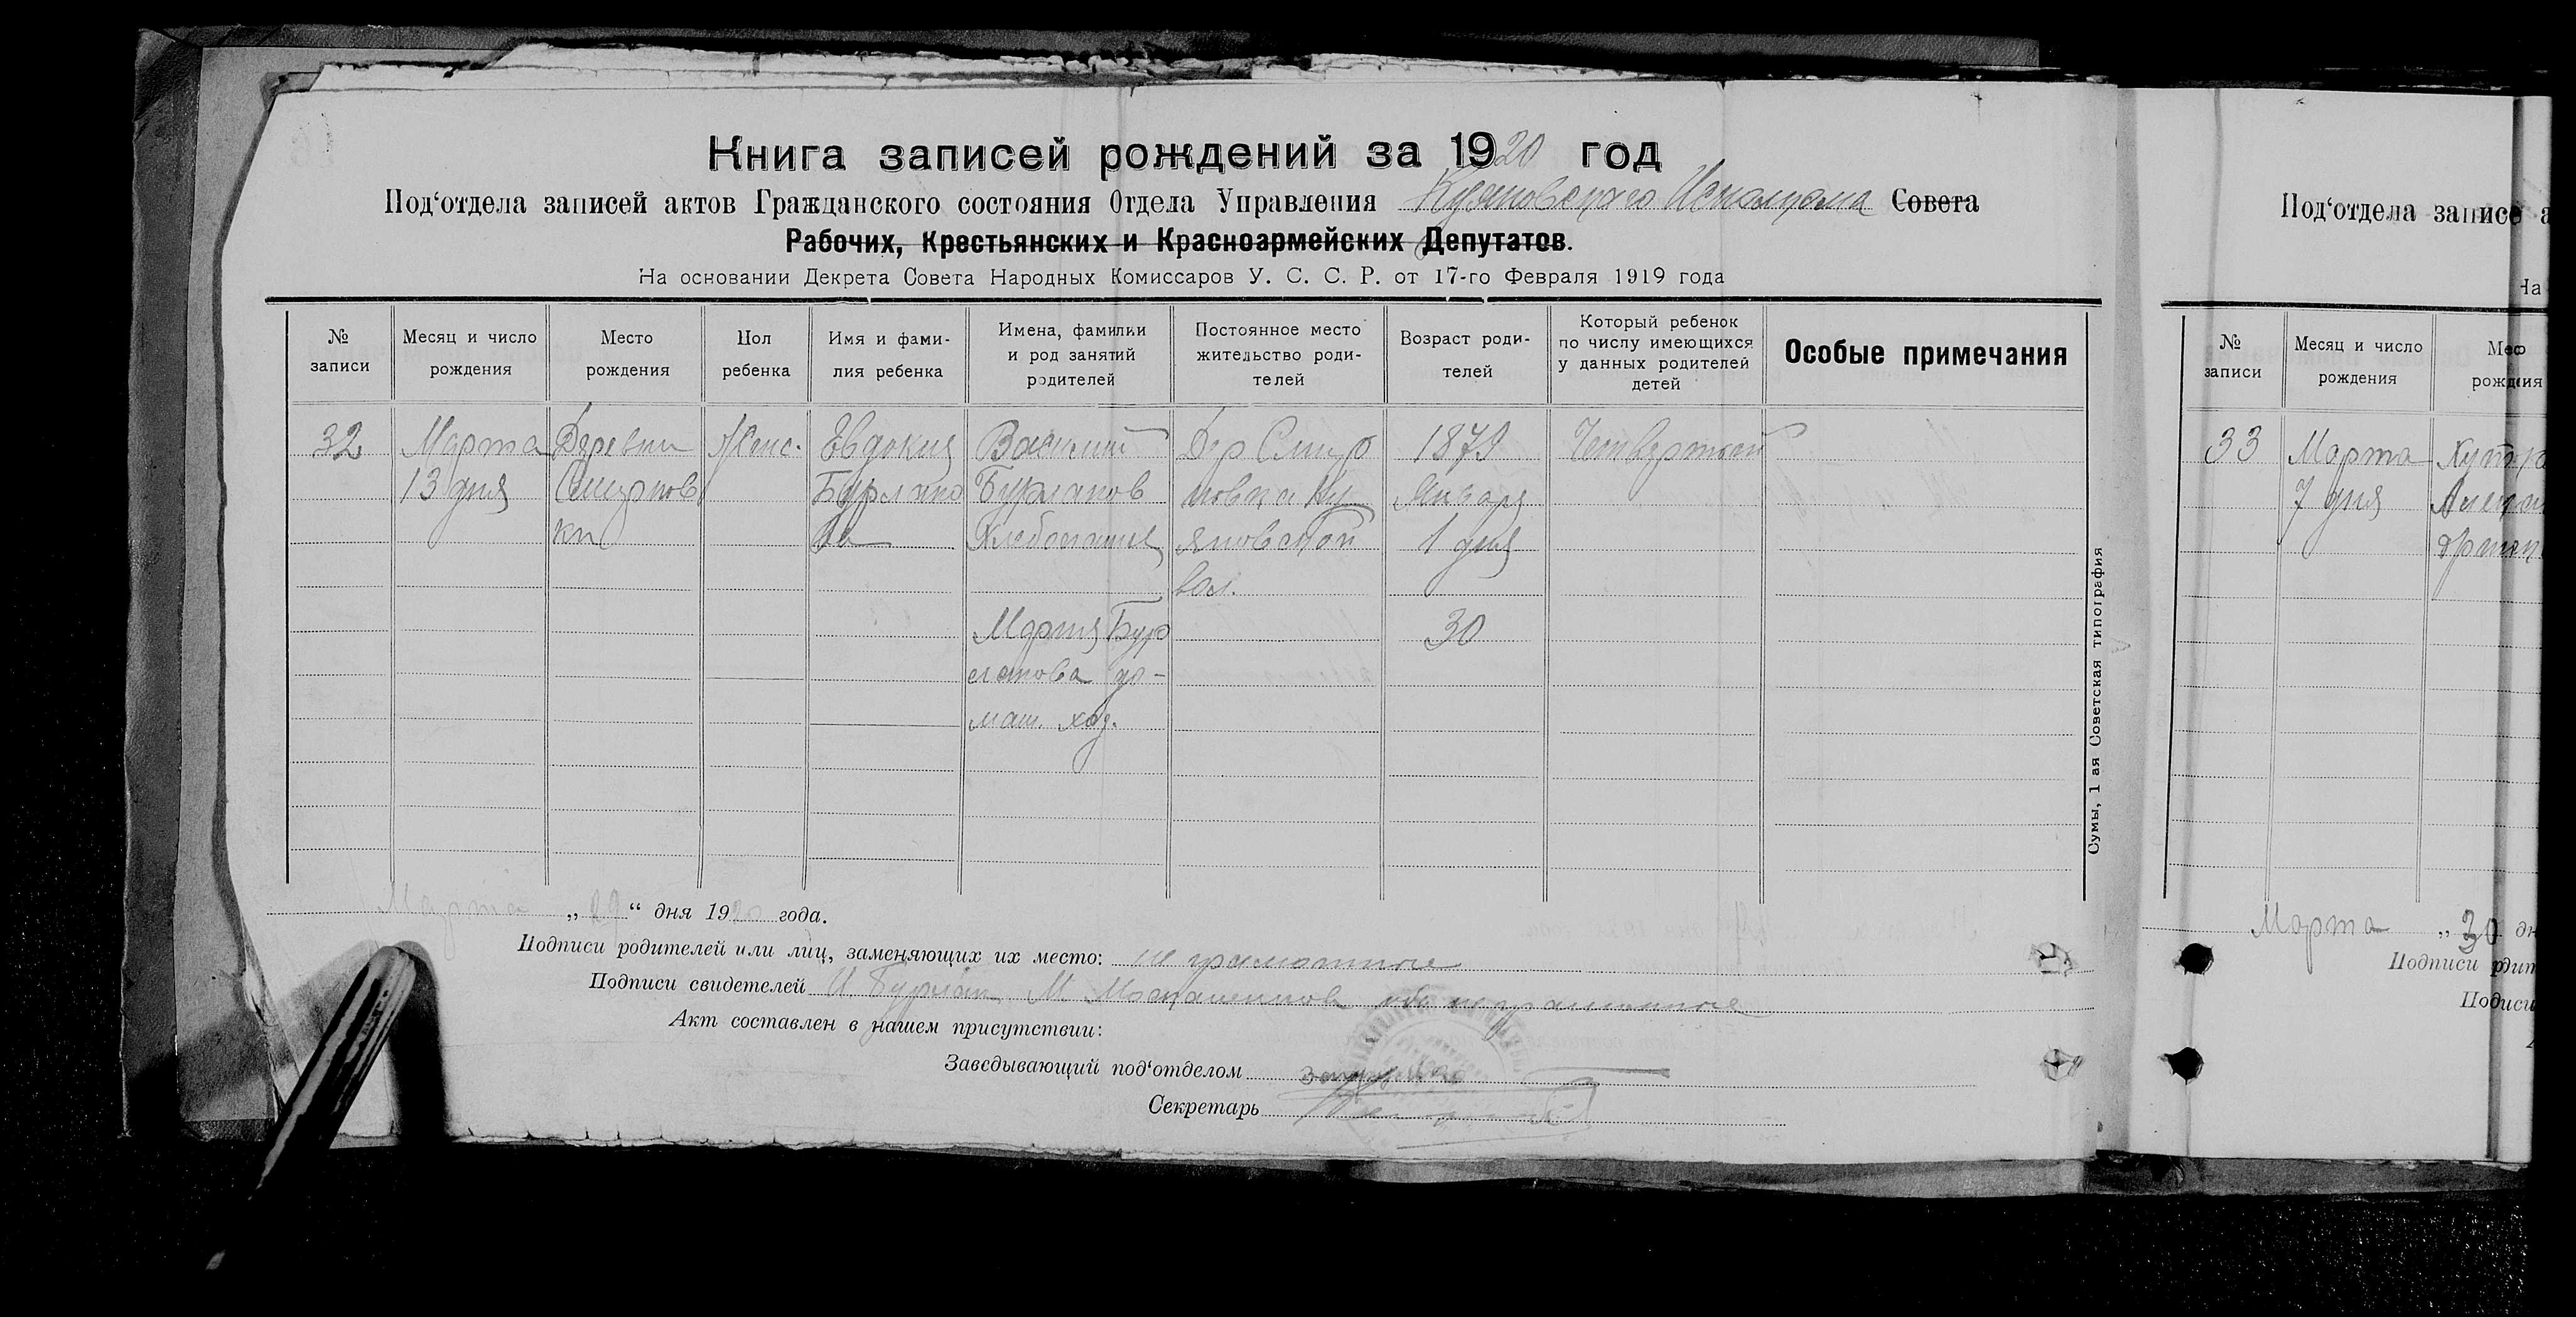 Книга записей рождений за 1920 год
Под‘отдела записей актов Гражданского состояния Отдела Управления Исполкома Совета
Рабочих, Крестьянских и Красноармейских Депутатов.
На основании Декрета Совета Народных Комиссаров У. С. С. Р. от 17-го Февраля 1919 года
№ записи
Месяц и число рождения
Место рождения
Пол ребенка
Имя и фами-
лия ребенка
Имена, фамилии
и род занятий
родителей
Постоянное место
жительство роди-
телей
Возраст роди-
телей
Который ребенок
по числу имеющихся
у данных родителей
детей
Особые примечания
32
Марта
13 дня
Деревни
Женс.
Евдокия
Бурлако
ва
Василий
Бурлаков
Хлебопашец
Мария Бур
лакова до-
маш. хоз.
Дер
новка Ку
яновской
вол.
1879
Января
1 дня
30
Четвертый
Сумы, 1 ая Советская типография
Марта „29“ дня 1920 года.
Подписи родителей или лиц, заменяющих их место: не грамотные
Подписи свидетелей неграмотные
Акт составлен в нашем присутствии:
Заведывающий под‘отделом
Секретарь
Под‘отдела записе
На
№ записи
Месяц и число рождения
33
Марта
7 дня
Марта „30
Подписи
Подписи